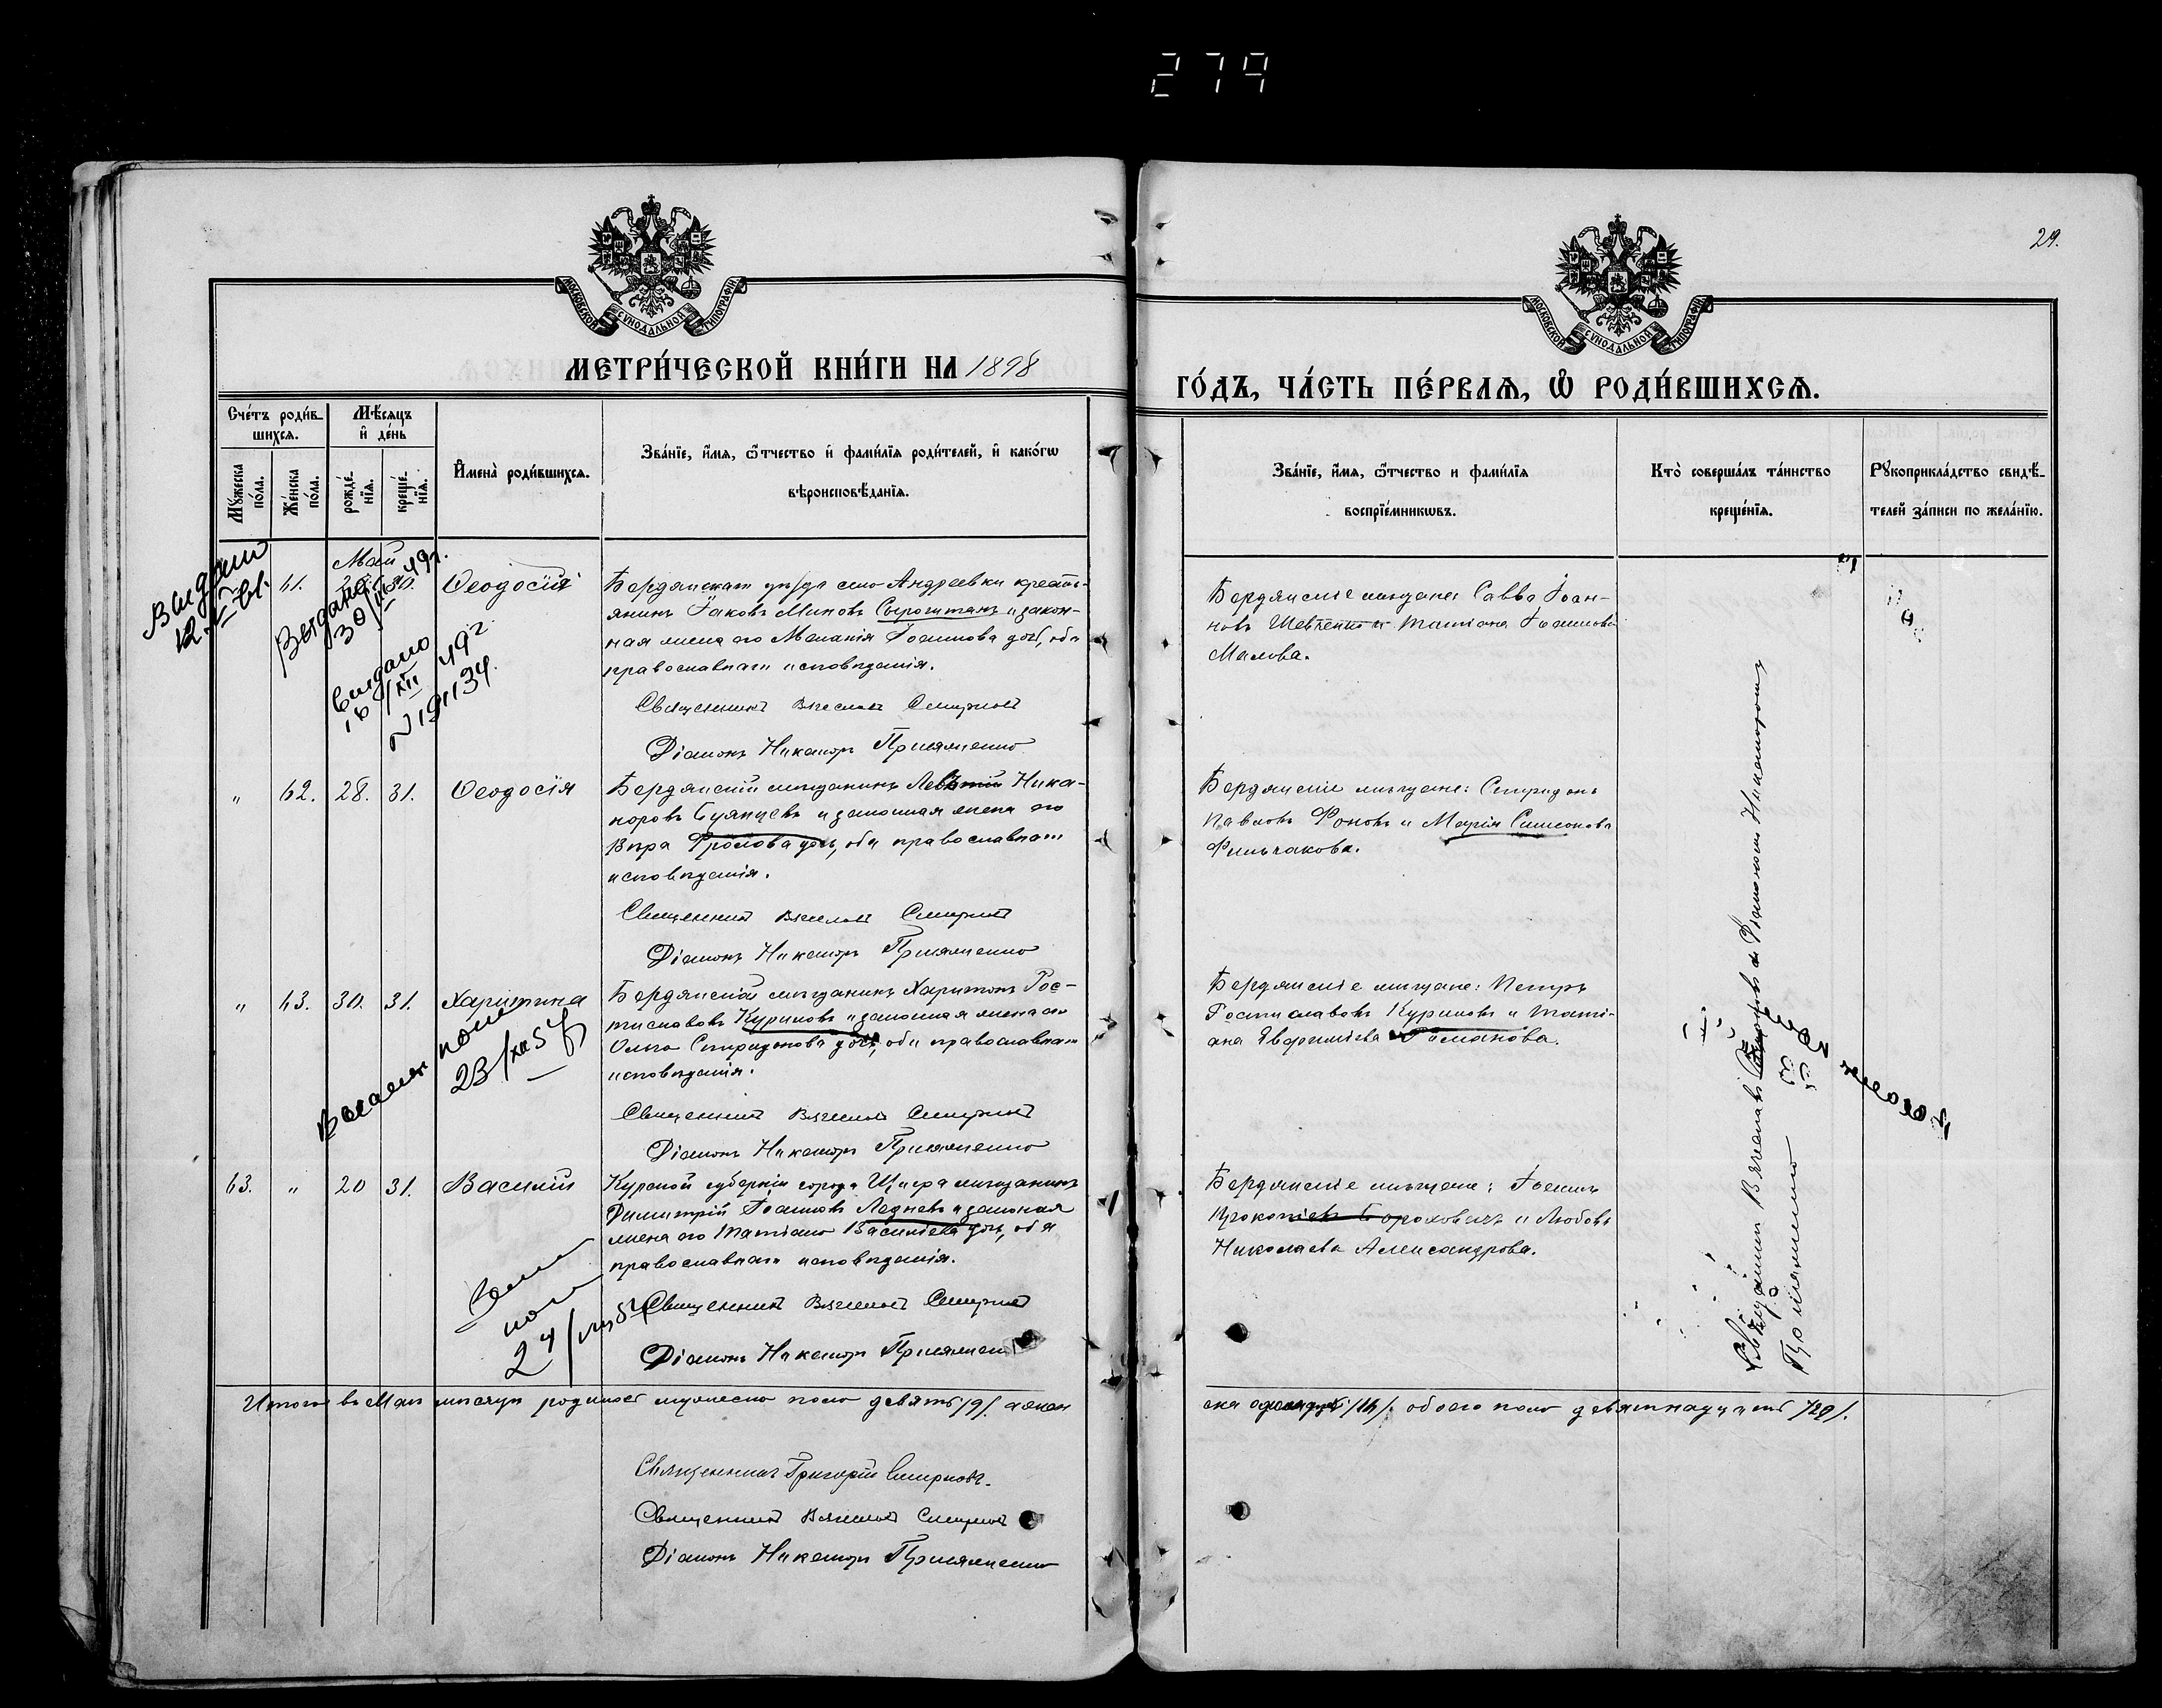 279
29.
МОСКОВСКОЙ СУНОДАЛЬНОЙ ТИПОГРАФІИ
МОСКОВСКОЙ СУНОДАЛЬНОЙ ТИПОГРАФІИ
МЕТРИ́ЧЕСКОЙ КНИ́ГИ НА 1898
ГО́ДЪ, ЧА́СТЬ ПЕ́РВАЯ, Ѡ РОДИ́ВШИХСЯ.
Сче́тъ роди́в-
шихся.
Мꙋ́жеска по́ла.
Же́нска по́ла.
Мѣ́сяцъ
и де́нь
рожде́-нія.
креще́-нія.
Имена̀ роди́вшихся.
Зва́ніе, и́мя, ѻ́тчество и фами́лія роди́телей, и како́гѡ
вѣроисповѣ́данія.
Зва́ніе, и́мя, ѻ́тчество и фами́лія
воспріе́мникѡвъ.
Кто̀ соверша́лъ та́инство
креще́нія.
Рꙋкоприкла́дство свидѣ́-
телей за́писи по жела́нію.
Май
61. 30. Ѳеодосія
Бердянскаго уѣзда село Андреевки кресть-
янинъ Іаковъ Сыроштанъ и закон-
ная жена его Меланія Іоаннова дочь, оба
православнаго исповѣданія.
Священникъ Вячеславъ Смирновъ
Діаконъ Никаноръ Присяженко
Бердянскіе мѣщане Савва Іоан-
новъ Шевченко и Татіана Іоаннова
Малова.
Выдано
Выдано
30
выдано
16/XII 49 г.
" 62. 28. 31. Ѳеодосія
Бердянскій мѣщанинъ Ника-
норовъ и законная жена его
Вѣра Фролова дочь, оба православнаго
исповѣданія.
Священникъ Вячеславъ Смирновъ
Діаконъ Никаноръ Присяженко
Бердянскіе мѣщане: Спиридонъ
Павловъ Фоновъ и Марія Симеонова
" 63. 30. 31. Харитина
Бердянскій мѣщанинъ Харитонъ Рос-
тиславовъ Куриловъ и законная жена его
Ольга Спиридонова дочь, оба православнаго
исповѣданія.
Священникъ Вячеславъ Смирновъ
Діаконъ Никаноръ Присяженко
Бердянскіе мѣщане: Петръ
Ростиславовъ Куриловъ и Тати-
ана Евфиміева Романова.
63. " 20 31. Василій
Курской губерніи города Щигра мѣщанинъ
Димитрій Іоанновъ Ледневъ и законная
жена его Татіана Васильева дочь, оба
православнаго исповѣданія.
Священникъ Вячеславъ Смирновъ
Діаконъ Никаноръ Присяженко
Бердянскіе мѣщане: Іоаннъ
Прокопіевъ и Любовь
Николаева Александрова.
Священникъ Вячеславъ Смирновъ съ Діакономъ Никаноромъ
Присяженко
Итого въ Маѣ мѣсяцѣ родилось мужеска пола девять /9/. а женска
обоего пола девятнадцать /19/.
Священникъ Григорій Смирновъ.
Священникъ Вячеславъ Смирновъ
Діаконъ Никаноръ Присяженко